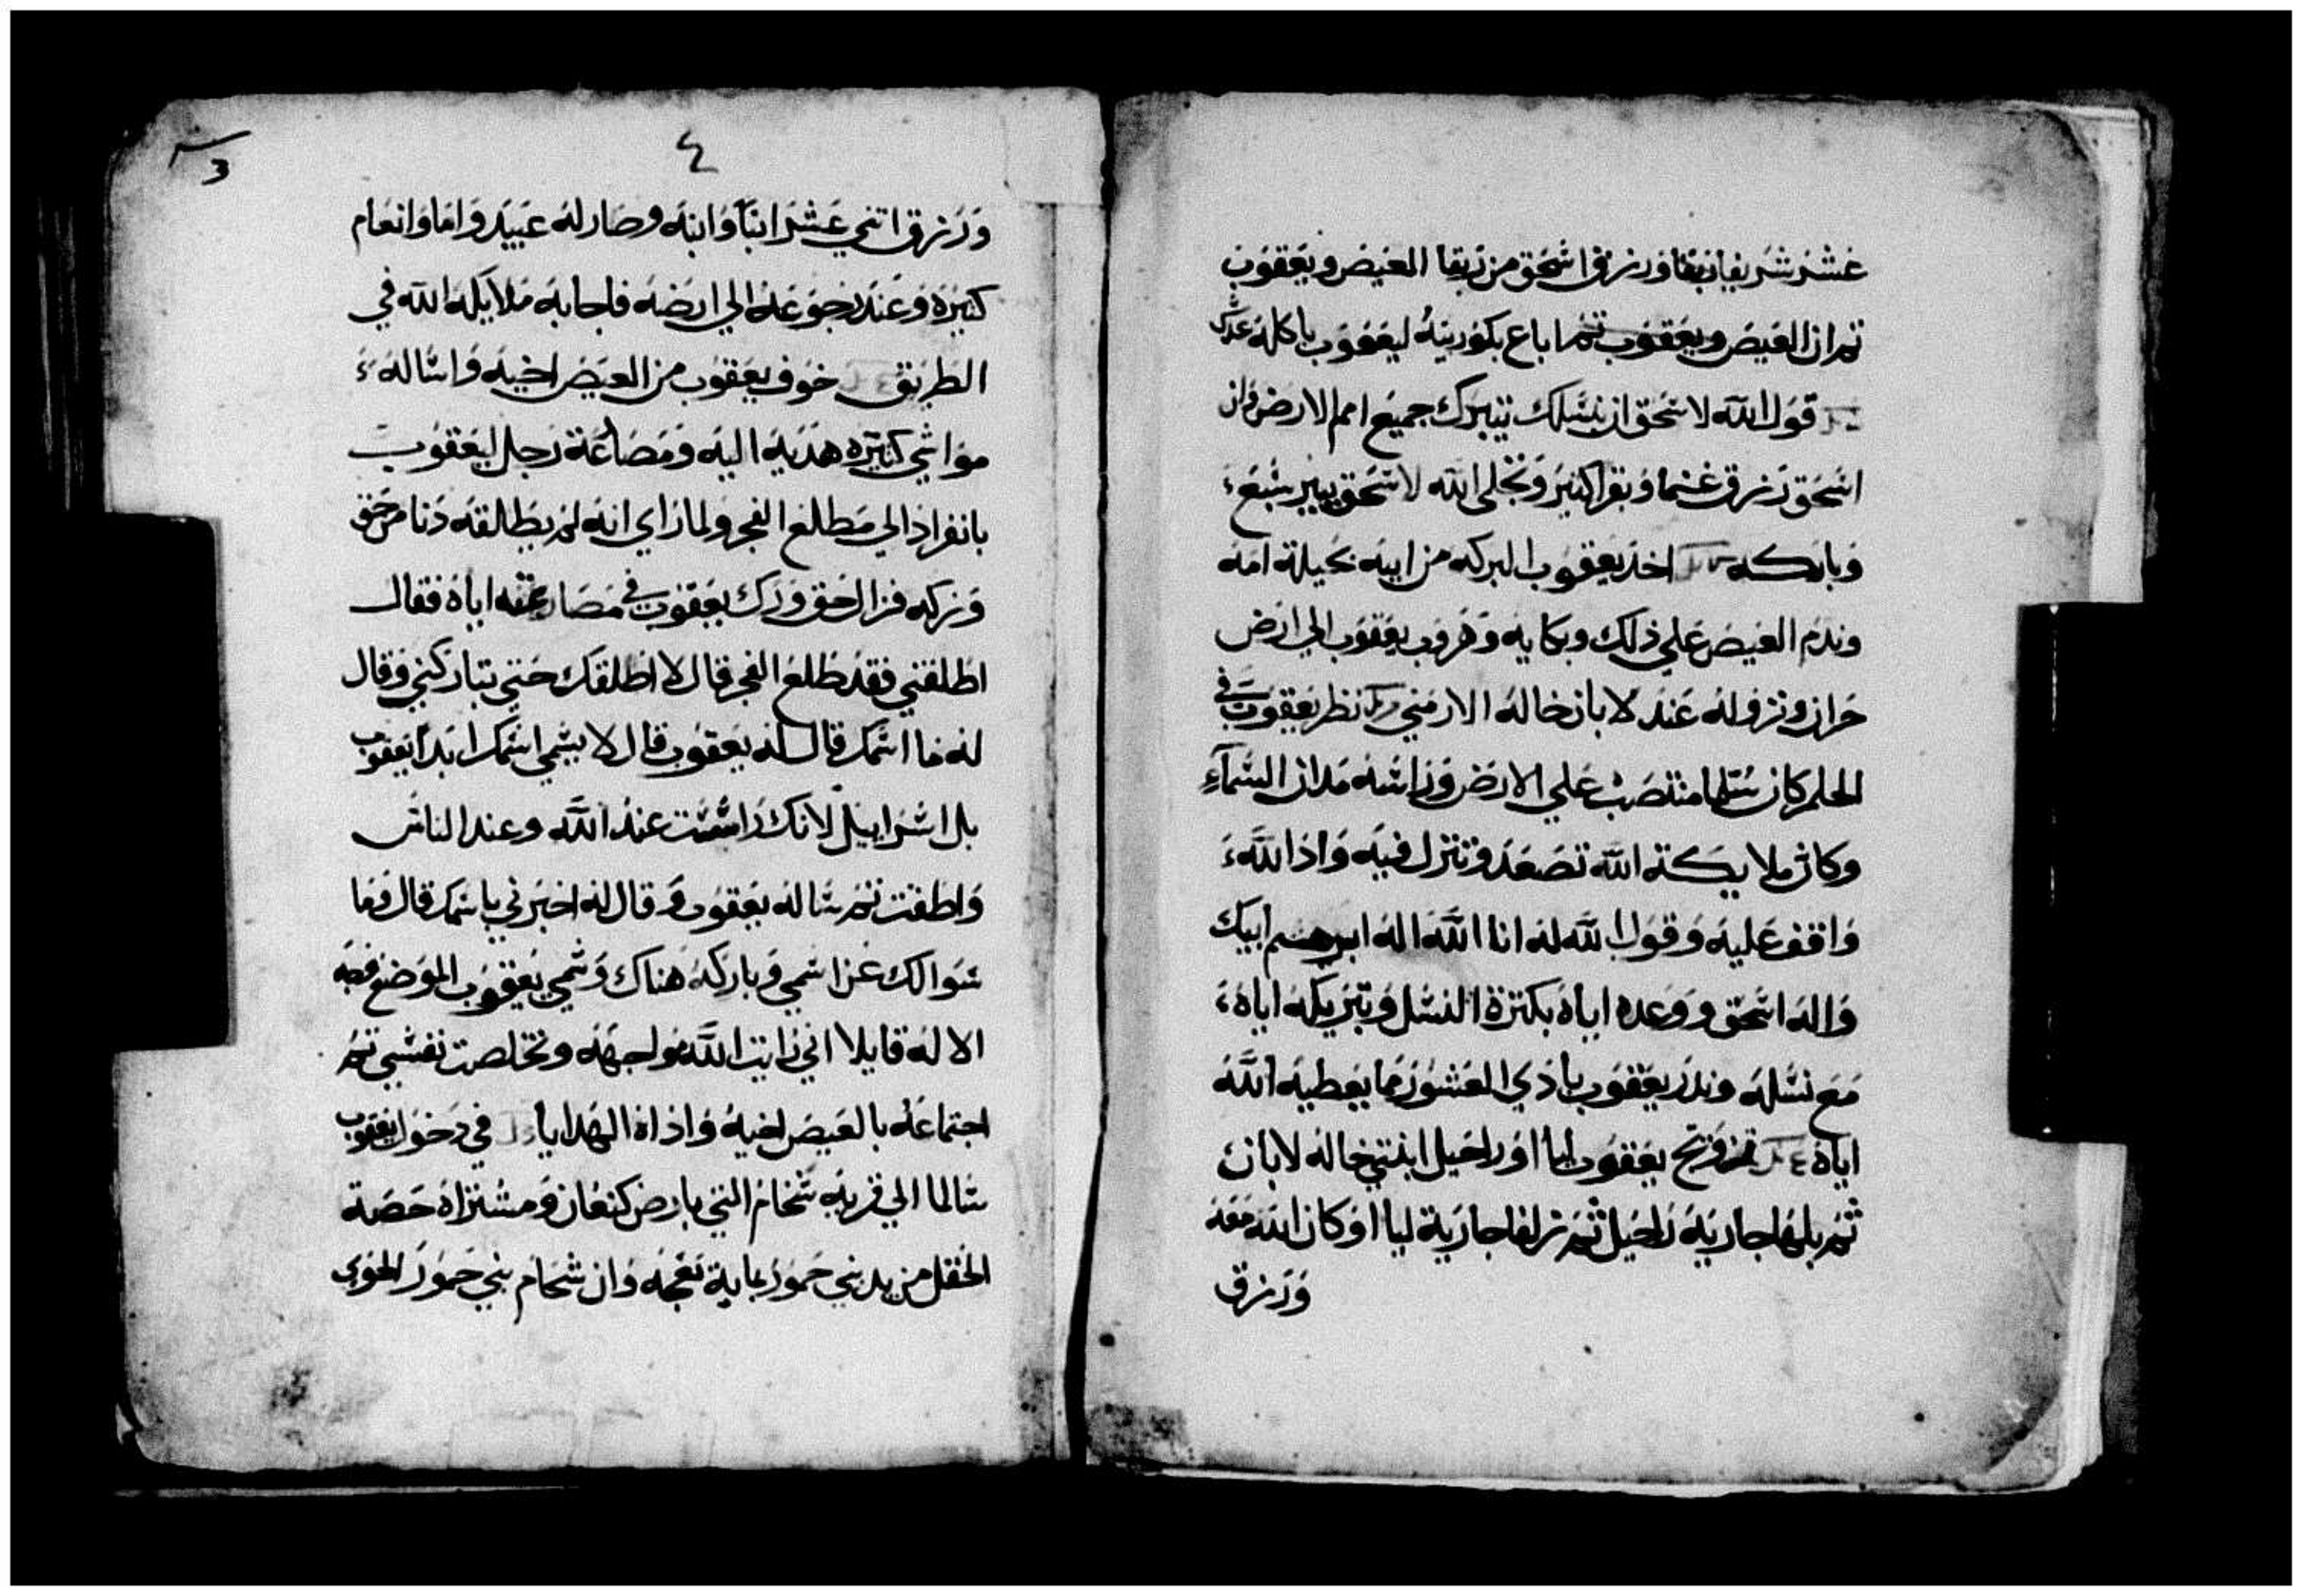 عشر شريفا نبقا ورزق اسحق من ربقا العيص ويعقوب
ثم ان العيص ويعقوب ثم اباع بكوريته ليعقوب باكله عدس
قول الله لاسحق ان بنسلك تتبرك جميع امم الارض وان
اسحق رزق غنما وبقرا كثير وتجلى الله لاسحق ببير سبع
وباركه اخذ يعقوب البركه من ابيه بحيلة امه
وندم العيص علي ذلك وبكايه وهروب يعقوب الي ارض
حران ونزوله عند لابان خاله الارمني نظر يعقوب في
الحلم كان سلما منتصب علي الارض وراسه مدان السمآء
وكان ملايكة الله تصعد وتنزل فيه واذا الله
واقف عليه وقول الله له انا الله اله ابرهيم ابيك
واله اسحق ووعده اياه بكثرة النسل وتبريكه اياه
مع نسله وندر يعقوب بادي العشور مما يعطيه الله
اياه تزوج يعقوب ليا اور احيل ابنتي خاله لابان
ثم بلها جارية راحيل ثم زلفا جارية ليا او كان الله معه
ورزق
٤
3
ورزق اتني عشر ابنا وابنه وصار له عبيد واما وانعام
كثيره وعند رجوعه الي ارضه فاجابه ملايكة الله في
الطريق خوف يعقوب من العيص اخيه وارساله
مواشي كثيره هديه اليه ومصارعة رجل ليعقوب
بانفراد الي مطلع الفجر ولما راي انه لم يطالقه دنا من حق
وركه فزال حق ورك يعقوب في مصارعته اياه فقال
اطلقني فقد طلع الفجر قال لا اطلقك حتي تباركني وقال
له ما اسمك قال له يعقوب قال لا يسمي اسمك ابدا يعقوب
بل اسراييل لانك راست عند الله وعند الناس
واطقت ثم ساله يعقوب وقال له اخبرني باسمك قال وما
سوالك عن اسمي وباركه هناك وسمي يعقوب الموضع
الاله قايلا اني رايت الله مواجهه وتخلصت نفسي ثم
اجتماعه بالعيص اخيه واذاه الهدايا في دخول يعقوب
سالما الي قرية سخام التي بارض كنعان ومشتراه حصة
الحقل من يد بني حمور بماية نعجه وان شحام بني حمور الحوي